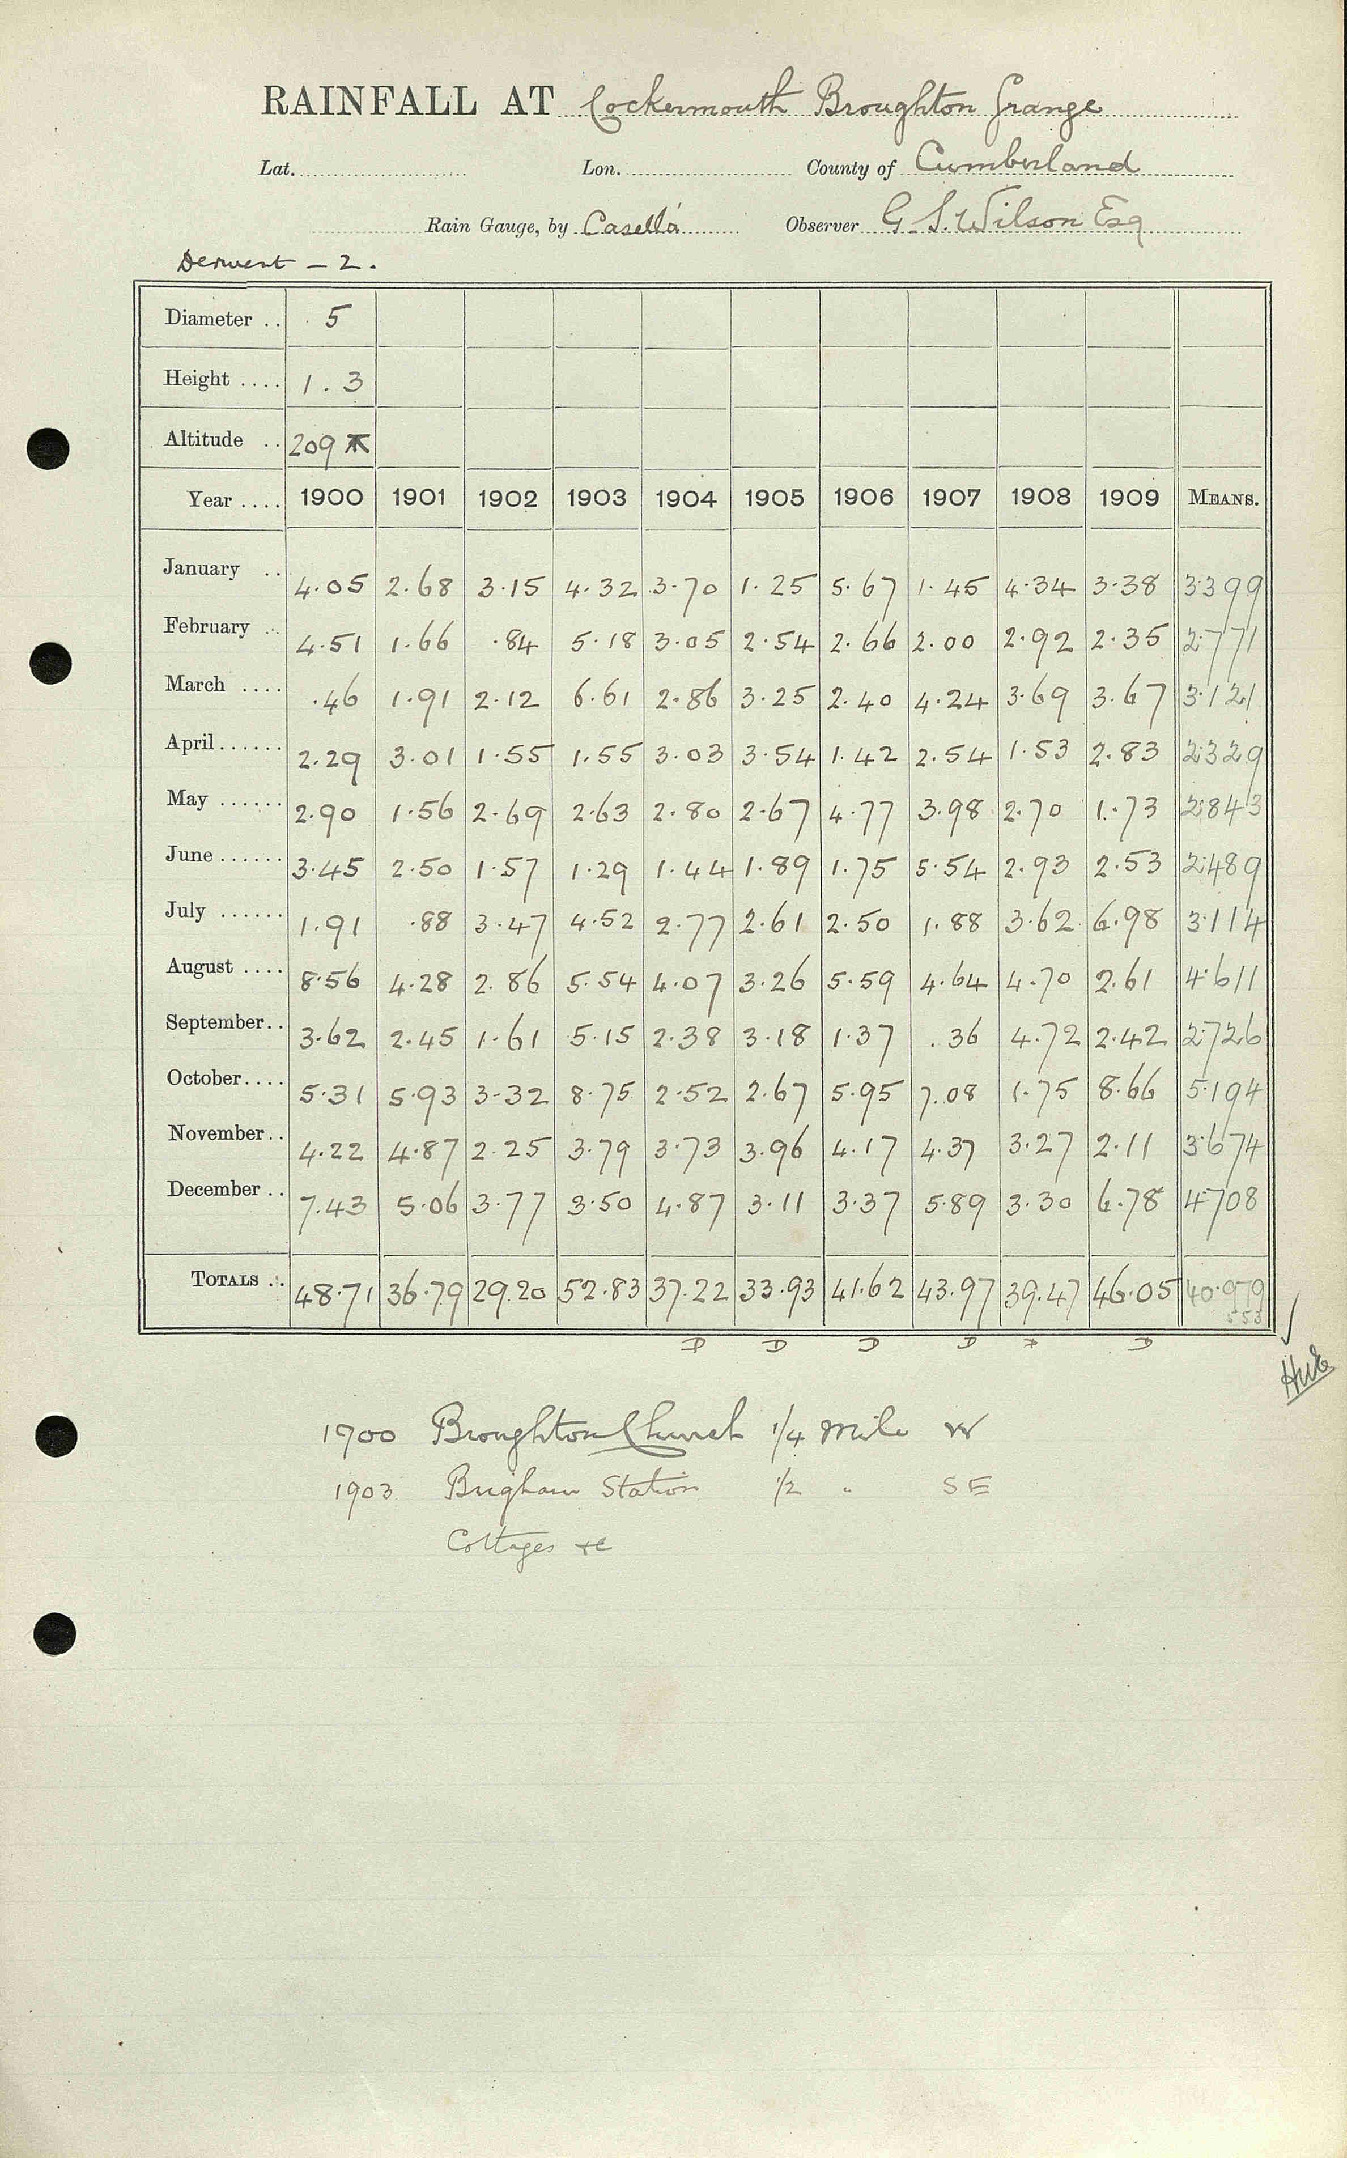 RAINFALL AT Cockermouth Broughton Grange
Lat. Lon. County of Cumberland
Rain Gauge, by Casella Observer G. S. Wilson Esq
Derwent - 2.
Diameter .. 5
Height .... 1.3
Altitude .. 209
Year .... 1900 1901 1902 1903 1904 1905 1906 1907 1908 1909 MEANS.
January .. 4.05 2.68 3.15 4.32 3.70 1.25 5.67 1.45 4.34 3.38 3.399
February .. 4.51 1.66 .84 5.18 3.05 2.54 2.66 2.00 2.92 2.35 2.771
March .... .46 1.91 2.12 6.61 2.86 3.25 2.40 4.24 3.69 3.67 3.121
April...... 2.29 3.01 1.55 1.55 3.03 3.54 1.42 2.54 1.53 2.83 2.329
May ...... 2.90 1.56 2.69 2.63 2.80 2.67 4.77 3.98 2.70 1.73 2.843
June ...... 3.45 2.50 1.57 1.29 1.44 1.89 1.75 5.54 2.93 2.53 2.489
July ...... 1.91 .88 3.47 4.52 2.77 2.61 2.50 1.88 3.62 6.98 3.114
August .... 8.56 4.28 2.86 5.54 4.07 3.26 5.59 4.64 4.70 2.61 4.611
September.. 3.62 2.45 1.61 5.15 2.38 3.18 1.37 .36 4.72 2.42 2.726
October.... 5.31 5.93 3.32 8.75 2.52 2.67 5.95 7.08 1.75 8.66 5.194
November.. 4.22 4.87 2.25 3.79 3.73 3.96 4.17 4.37 3.27 2.11 3.674
December .. 7.43 5.06 3.77 3.50 4.87 3.11 3.37 5.89 3.30 6.78 4.708
TOTALS .. 48.71 36.79 29.20 52.83 37.22 33.93 41.62 43.97 39.47 46.05 40.979
D D D D D
1900 Broughton Church 1/4 Mile W
1903 Brigham Station 1/2 " SE
Cottages &c